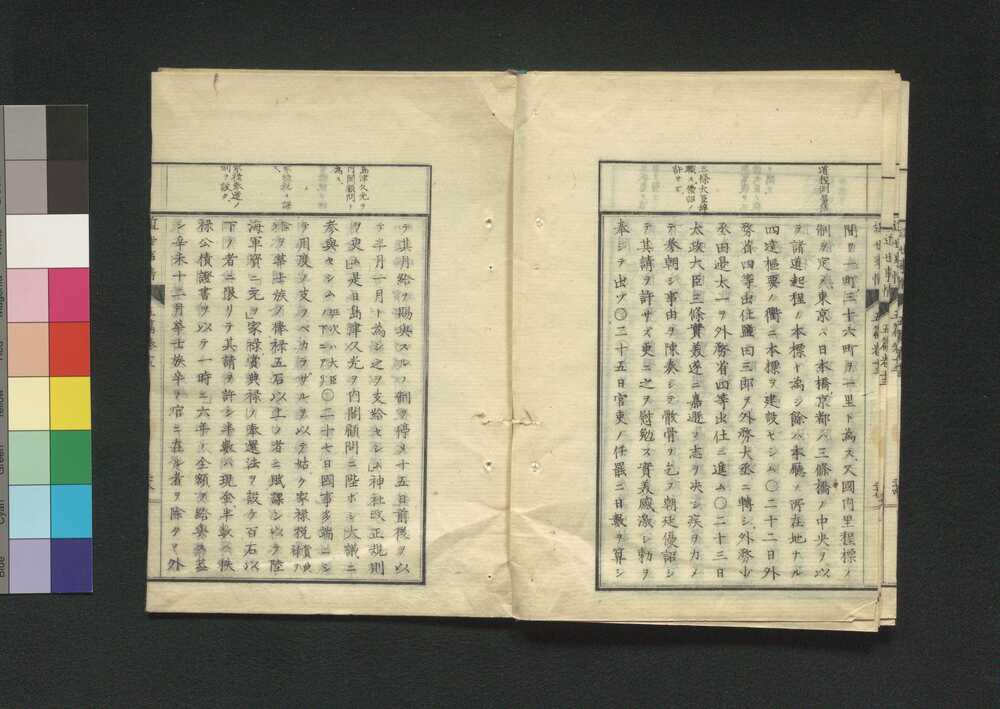 道程測量
三條大臣辭
職ノ儀却ノ
許サズ
間ヲ一町三十六町ヲ一里ト為ス又國內里程標ノ
制ヲ定メ東京ハ日本橋京都ハ三條橋ノ中央ヲ以
テ諸道起程ノ本標ト為シ餘ハ本廳ノ所在地ナル
四達樞要ノ衢ニ本標ヲ建設セシム〇二十二日外
務省四等出仕鹽田三郎ヲ外務大丞ニ轉シ外務少
丞田邊太一ヲ外務省四等出仕ニ進ム〇二十三日
太政大臣三條實美遂ニ嘉遯ノ志ヲ决シ疾ヲカメ
テ參朝シ事由ヲ陳奏シテ骸骨ヲ乞フ朝廷優詔シ
テ其請ヲ許サズ更ニ之ヲ慰勉ス實美感激シ勅ヲ
奉シテ出ヅ〇二十五日官吏ノ任罷ニ日數ヲ算シ
島津久光ヲ
內閣顧問ト
為ス
家祿奉還ノ
制ヲ設ク
テ其月給ヲ賜與スルノ制ヲ停メ十五日前後ヲ以
テ半月一月ト為シ之ヲ支給セシム神社改正規則
ヲ更ム是日島津久光ヲ內閣顧問ニ陞ボシ大議ニ
參與セシム〇二十七日國事多端ニシ
テ用度ノ支フベカラザルヲ以テ姑ク家祿税
ヲ華士族ノ俸祿五石以上ノ者ニ賦課シ以テ陸
海軍資ニ充ツ家祿賞典祿ノ奉還法ヲ設ケ百石以
下ノ者ニ限リテ其請ヲ許シ半數ハ現金半數ハ秩
祿公債證書ヲ以テ一時ニ六年ノ全額ヲ給與ス蓋
シ辛未十二月華士族卒ノ官ニ在ル者ヲ除クヲ外